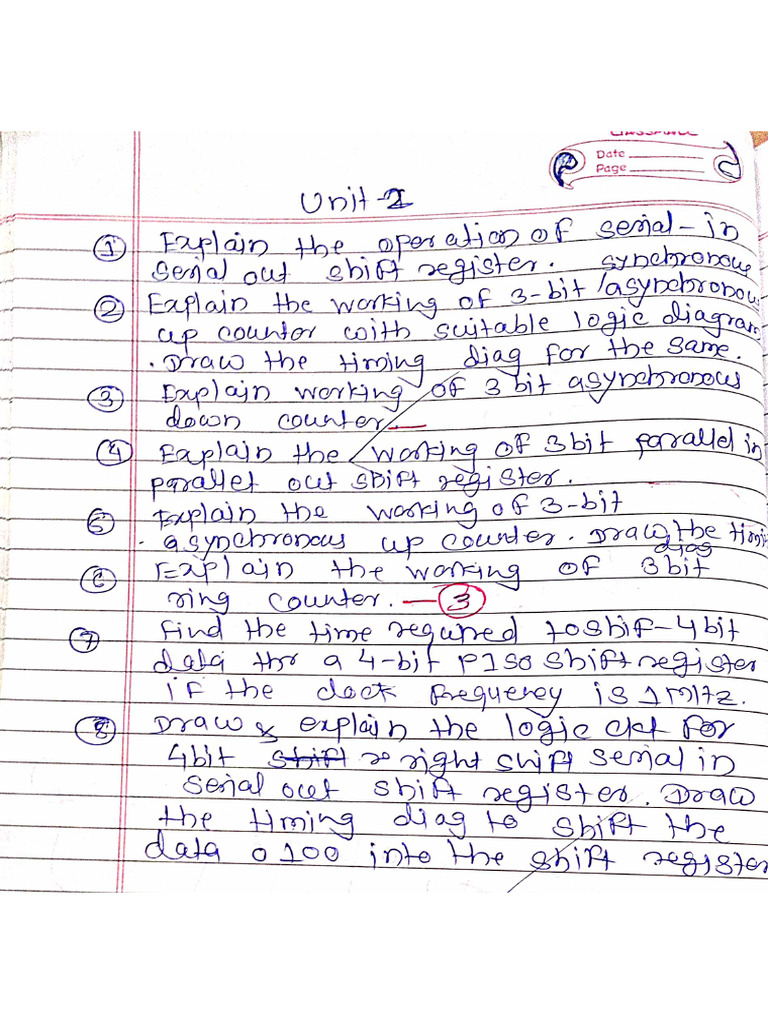 CLASSMATE
Date
Page
Unit-2
① Explain the operation of serial-in
serial out shift register. synchronous
② Explain the working of 3-bit /asynchronous
up counter with suitable logic diagram
. Draw the timing diag for the same.
③ Explain working of 3 bit asynchronous
down counter
④ Explain the working of 3bit parallel in
parallel out shift register.
⑤ Explain the working of 3-bit
. asynchronous up counter. Draw the timi
diag
⑥ Explain the working of 3bit
ring counter. — ③
⑦ Find the time required to shif-4bit
data thr a 4-bit PISO shift register
if the clock frequency is 1MHz.
⑧ Draw & explain the logic ckt for
4bit shift right shift serial in
serial out shift register. Draw
the timing diag to shift the
data 0100 into the shift register